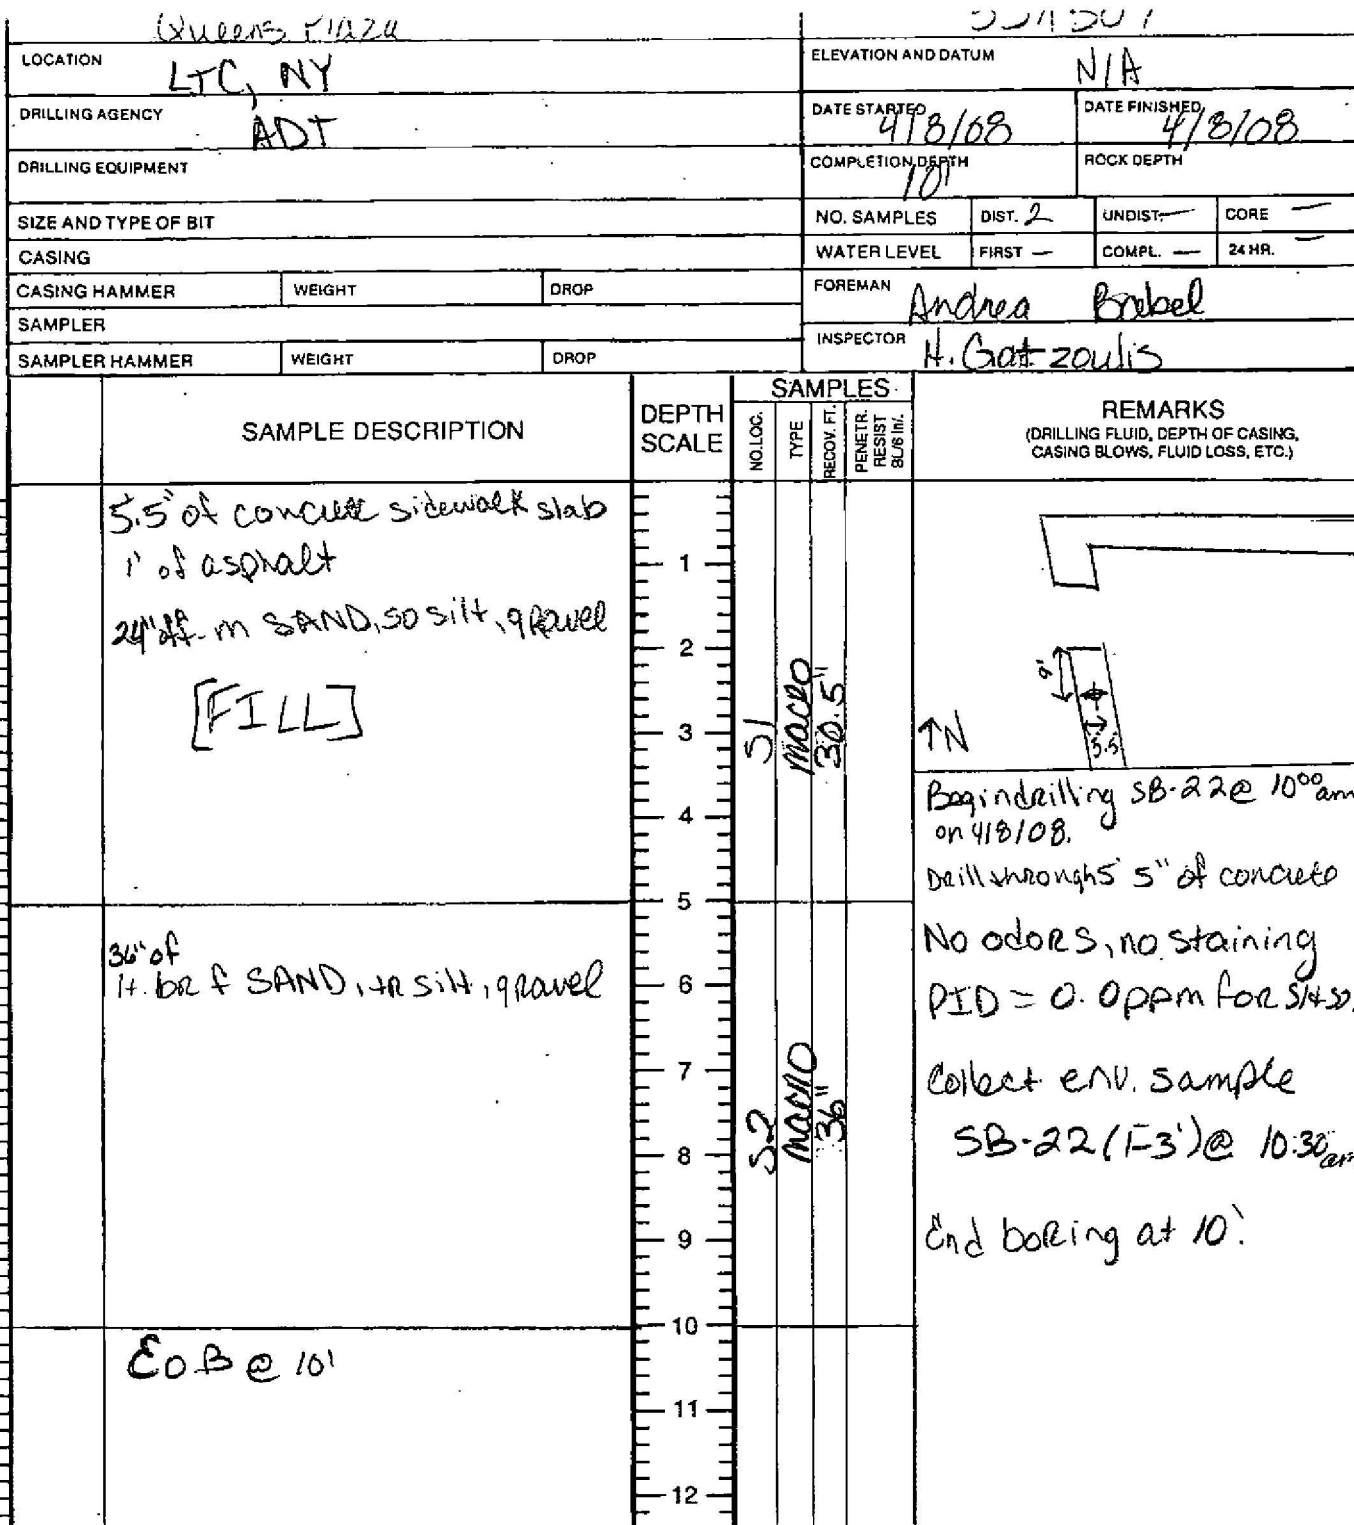 Queens Plaza
LOCATION LIC, NY
ELEVATION AND DATUM N/A
DRILLING AGENCY ADT
DATE STARTED 4/8/08 DATE FINISHED 4/8/08
DRILLING EQUIPMENT
COMPLETION DEPTH 10' ROCK DEPTH
SIZE AND TYPE OF BIT
NO. SAMPLES DIST. 2 UNDIST. — CORE —
CASING
WATER LEVEL FIRST — COMPL. — 24 HR. —
CASING HAMMER WEIGHT DROP
FOREMAN Andrea
SAMPLER
INSPECTOR H. Gatzoulis
SAMPLER HAMMER WEIGHT DROP
SAMPLE DESCRIPTION
DEPTH SCALE
SAMPLES
NO.LOC.
TYPE
RECOV. FT.
PENETR. RESIST BL/6 in/.
REMARKS
(DRILLING FLUID, DEPTH OF CASING,
CASING BLOWS, FLUID LOSS, ETC.)
5.5" of concrete sidewalk slab
1" of asphalt
24" of f-m SAND, so silt, gravel
[FILL]
36" of
lt. br f SAND, tr silt, gravel
EOB @ 10'
1
2
3
4
5
6
7
8
9
10
11
12
S1 macro 30.5"
S2 macro 36"
9'
5.5'
↑N
Begin drilling SB-22 @ 10⁰⁰ am
on 4/8/08.
Drill through 5.5" of concrete
No odors, no staining
PID = 0.0ppm for
Collect env. sample
SB-22 (1-3') @ 10:30 am
End boring at 10'.